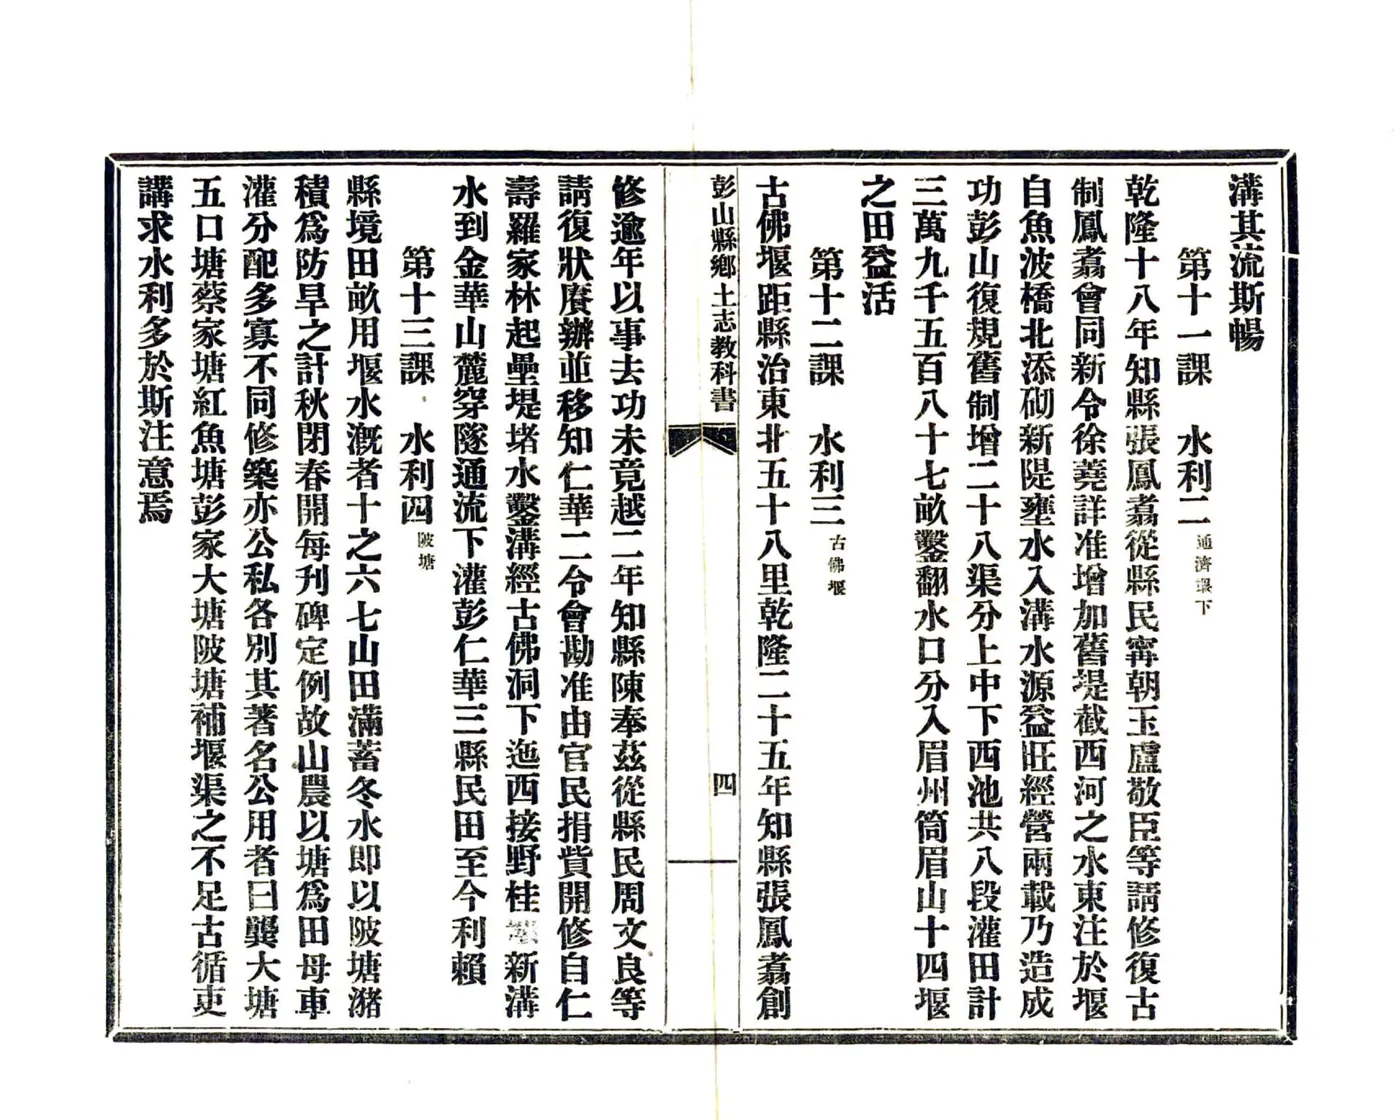 溝其流斯暢
第十一課　水利二通濟堰下
乾隆十八年知縣張鳳翥從縣民甯朝玉盧敬臣等請修復古
制鳳翥會同新令徐蕘詳准增加舊堤截西河之水東注於堰
自魚波橋北添砌新隄壅水入溝水源益旺經營兩載乃造成
功彭山復規舊制增二十八渠分上中下西池共八段灌田計
三萬九千五百八十七畝鑿翻水口分入眉州筒眉山十四堰
之田益活
第十二課　水利三古佛堰
古佛堰距縣治東北五十八里乾隆二十五年知縣張鳳翥創
彭山縣鄉土志教科書
四
修逾年以事去功未竟越二年知縣陳奉茲從縣民周文良等
請復狀廣辦並移知仁華二令會勘准由官民捐貲開修自仁
壽羅家林起壘堤堵水鑿溝經古佛洞下迤西接野桂新溝
水到金華山麓穿隧通流下灌彭仁華三縣民田至今利賴
第十三課　水利四陂塘
縣境田畝用堰水溉者十之六七山田滿蓄冬水即以陂塘瀦
積爲防旱之計秋閉春開每刋碑定例故山農以塘爲田母車
灌分配多寡不同修築亦公私各別其著名公用者曰龔大塘
五口塘蔡家塘紅魚塘彭家大塘陂塘補堰渠之不足古循吏
講求水利多於斯注意焉